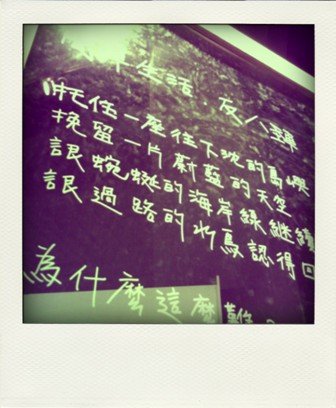 生活．友
托住一座往下沈的島嶼
挽留一片蔚藍的天空
誏蜿蜒的海岸線繼續
誏過路的水鳥認得回
為什麼這麼難